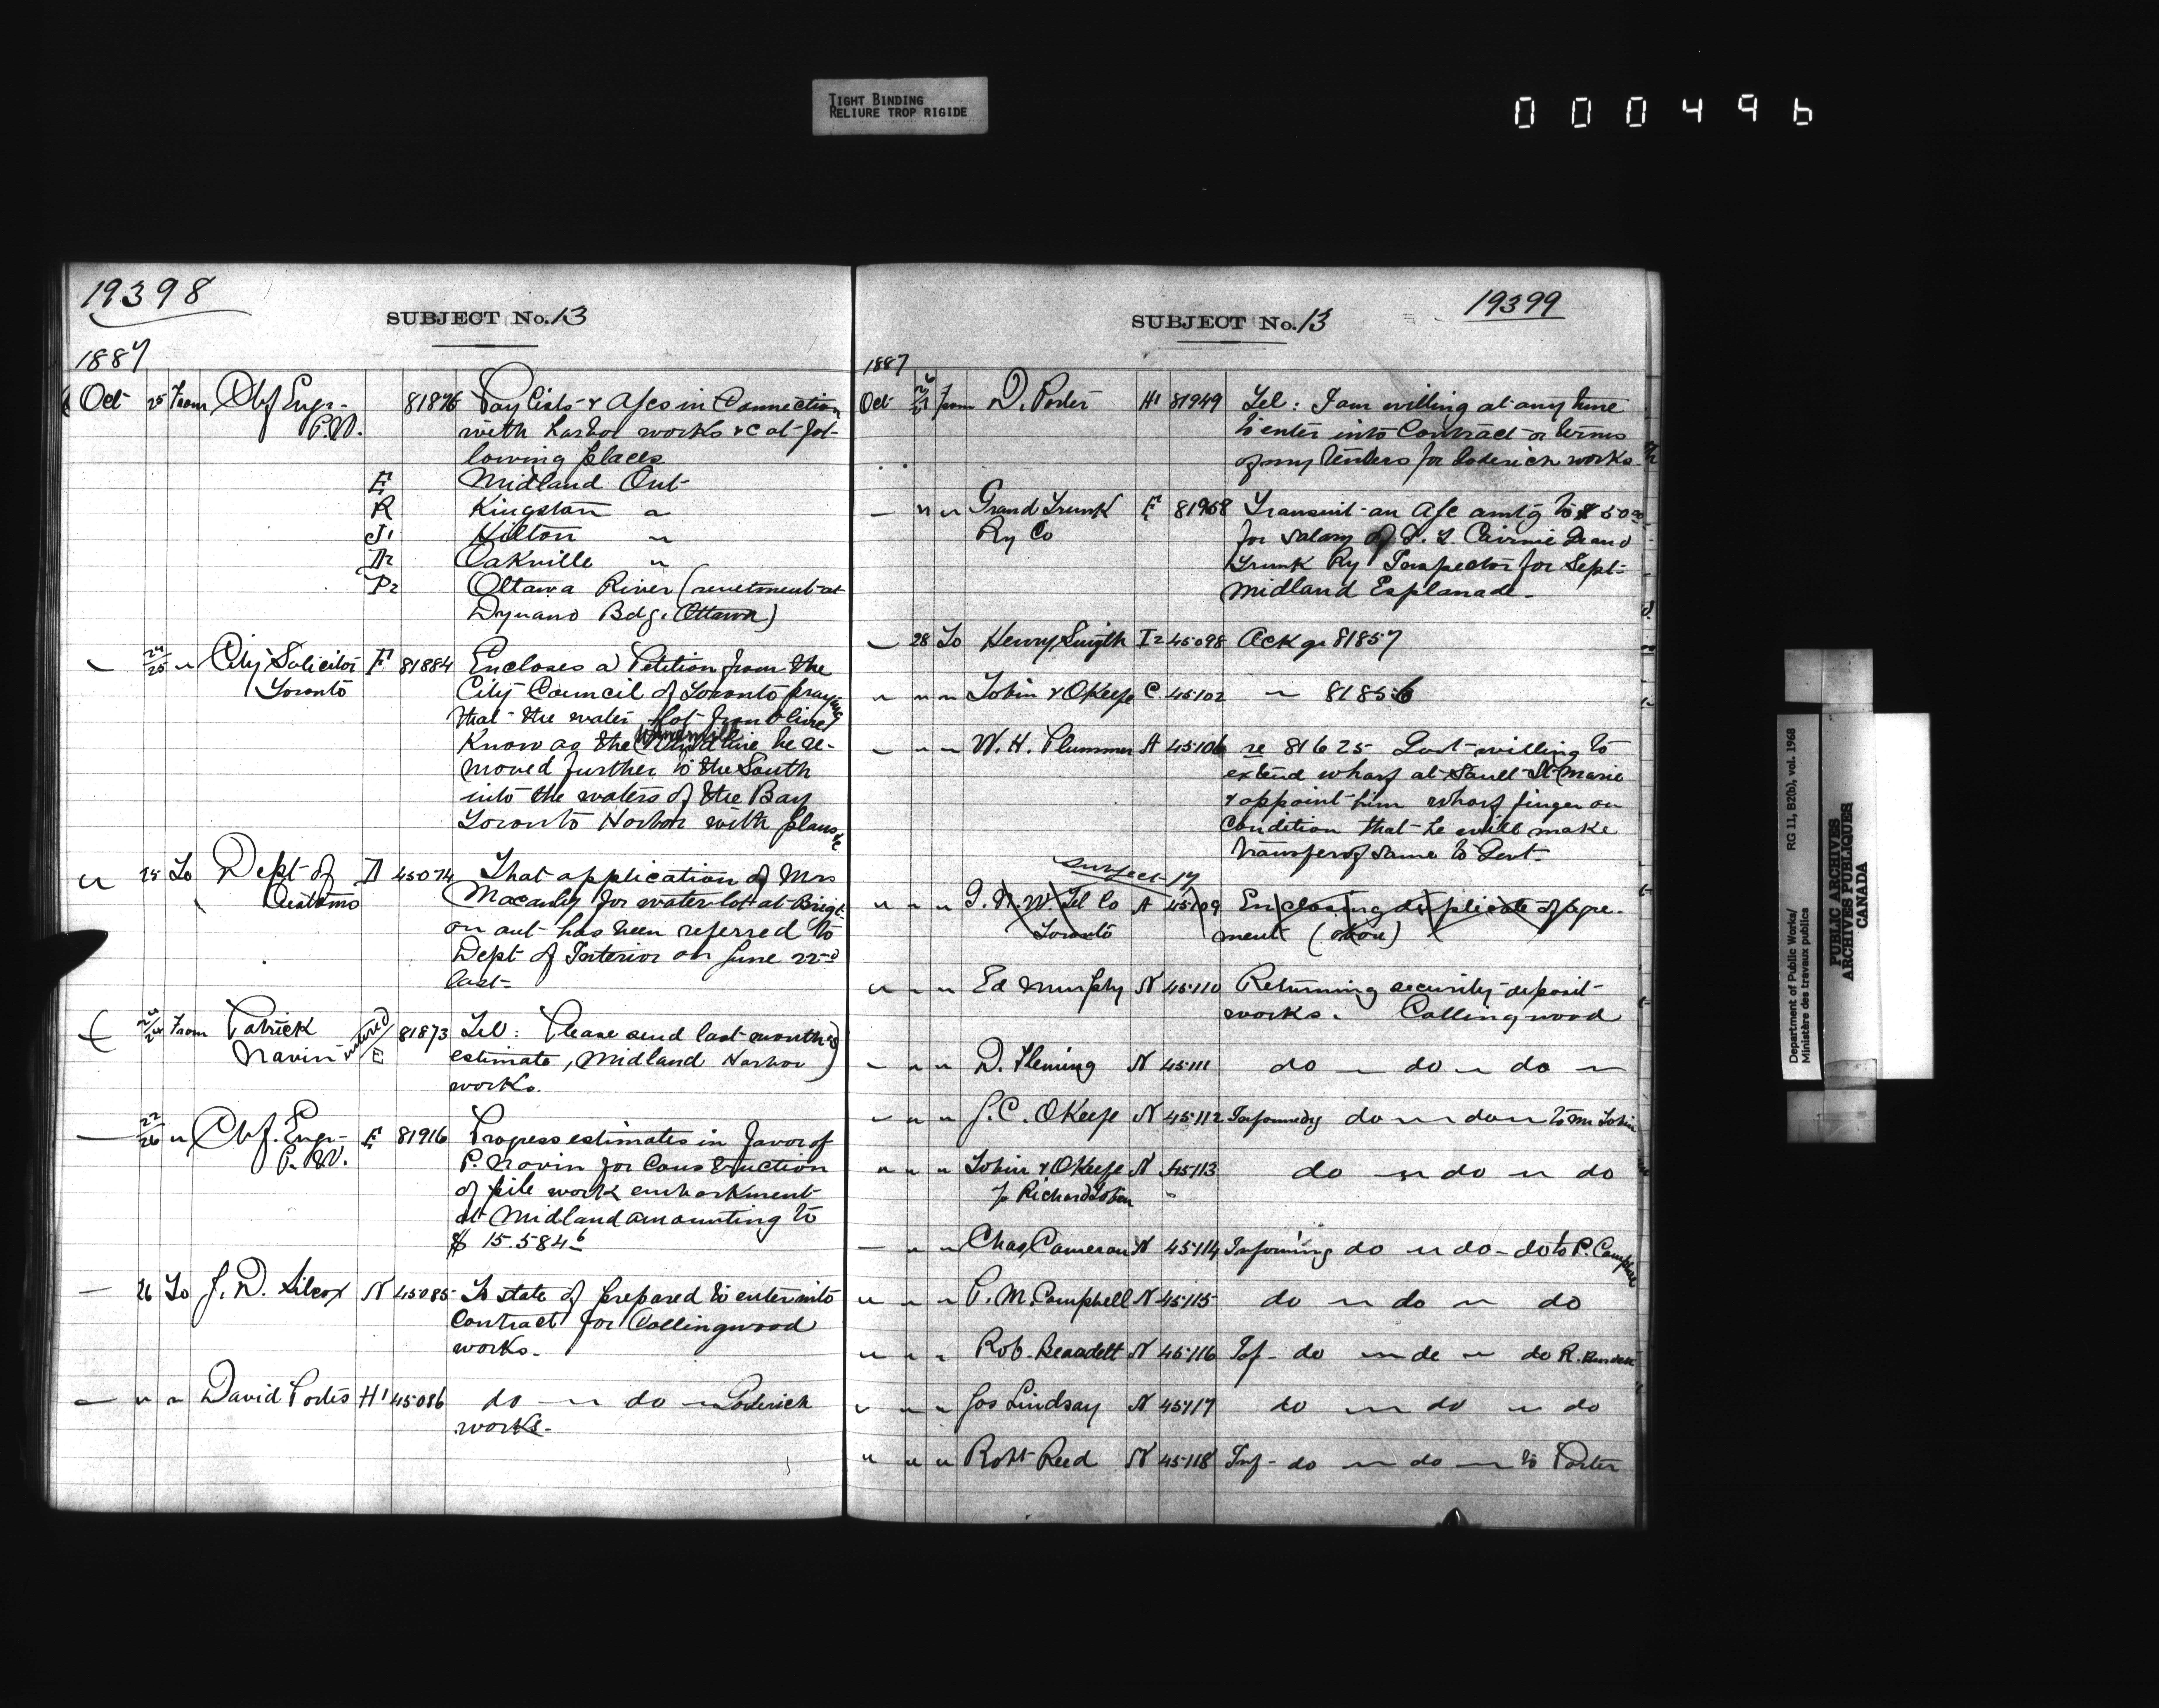 TIGHT BINDING
RELIURE TROP RIGIDE
000496
19398
SUBJECT No. 13
1887
Oct 25 From Chf Engr 81876 Pay lists & A/cs in Connection
P.W. with harbor works &c at fol-
lowing places
E Midland Ont
R Kingston "
J1 Hilton "
A2 Oakville "
P2 Ottawa River (revetment at
Dynamo Bdg. Ottawa)
24/25 " City Solicitor F 81884 Encloses a Petition from the
Toronto City Council of Toronto praying
that the water lot front line
Know as the Windmill line be re-
moved further to the South
into the waters of the Bay
Toronto Harbor with plans &c
" 25 To Dept of D 45074 That application of Mrs
Customs Macaulay for water lot at Brigt-
on ont has been referred to
Dept of Interior on June 22nd
last-
From Patrick 81873 Tel: Please send last months
Navin entered E estimate, Midland Harbor
works.
22/26 " Chf. Engr E 81916 Progress estimates in favor of
P.W. P. Navin for Construction
of pile work embarkment
at Midland amounting to
$ 15.584
26 To J. D. Silcox N 45085 To state if prepared to enter into
Contract for Collingwood
works.
" " David Porter H1 45086 do " do " Goderich
works.
SUBJECT No. 13
19399
1887
Oct From D. Porter H1 81949 Tel: I am willing at any time
to enter into Contract on terms
of my tenders for Goderich works
" " Grand Trunk E 81958 Transmit an A/c amtg to $50
Ry Co for salary of Grand
Trunk Ry Inspector for Sept
Midland Esplanade-
28 To Henry Smyth I2 45098 Ackg 81857
" " " Tobin & OKeefe C. 45102 " 81856
" " W. H. Plummer A 45106 re 81625 Govt willing to
extend wharf at Sault St Marie
& appoint him wharfinger on
Condition that he will make
transfer of same to Govt.
Subject 17
" " " G. N. W. Tel Co A 45109 Enclosing duplicate of Agre-
Toronto ment
" " " Ed Murphy N 45110 Returning security deposit
works. Collingwood
" " D. Fleming N 45111 do " do " do "
" " J. C. OKeefe N 45112 Informing do " do " to Mr Tobin
" " " Tobin & OKeefe N 45113 do " do " do
p Richard Tobin
" " Chas Cameron N 45114 Informing do " do - do to P. Campbell
" " " P. M. Campbell N 45115 do " do " do
" " " Rob. Beardett N 45116 Inf- do " do " do R.
" " Jos Lindsay N 45117 do " do " do
" " " Robt Reed N 45118 Inf- do " do " to Porter
Department of Public Works/
Ministère des travaux publics
RG 11, B2(b), vol. 1968
PUBLIC ARCHIVES
ARCHIVES PUBLIQUES
CANADA